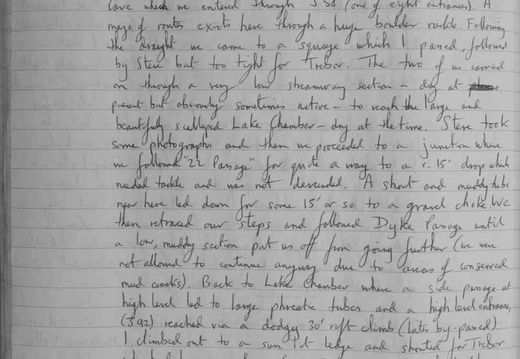 cave which we entered through J38 (one of eight entrances). A
maze of routes exists here through a huge boulder ruckle. Following
the draught we came to a squeeze which I passed, followed
by Steve but too tight for Trebor. The two of us carried
on through a very low streamway section - dry at
present but obviously sometimes active - to reach the large and
beautifully scalloped Lake Chamber - dry at the time. Steve took
some photographs and then we proceeded to a junction where
we followed "22 Passage" for quite a way to a c. 15' drop which
needed tackle and was not descended. A short and muddy tube
near here led down for some 15' or so to a gravel choke. We
then retraced our steps and followed Dyke Passage until
a low, muddy section put us off from going further (we were
not allowed to continue anyway due to areas of conserved
mud cracks). Back to Lake Chamber where a side passage at
high level led to large phreatic tubes and a high level entrance,
(J92) reached via a dodgy 30' rift climb (later by-passed)
I climbed out to a sun lit ledge and shouted for Trebor